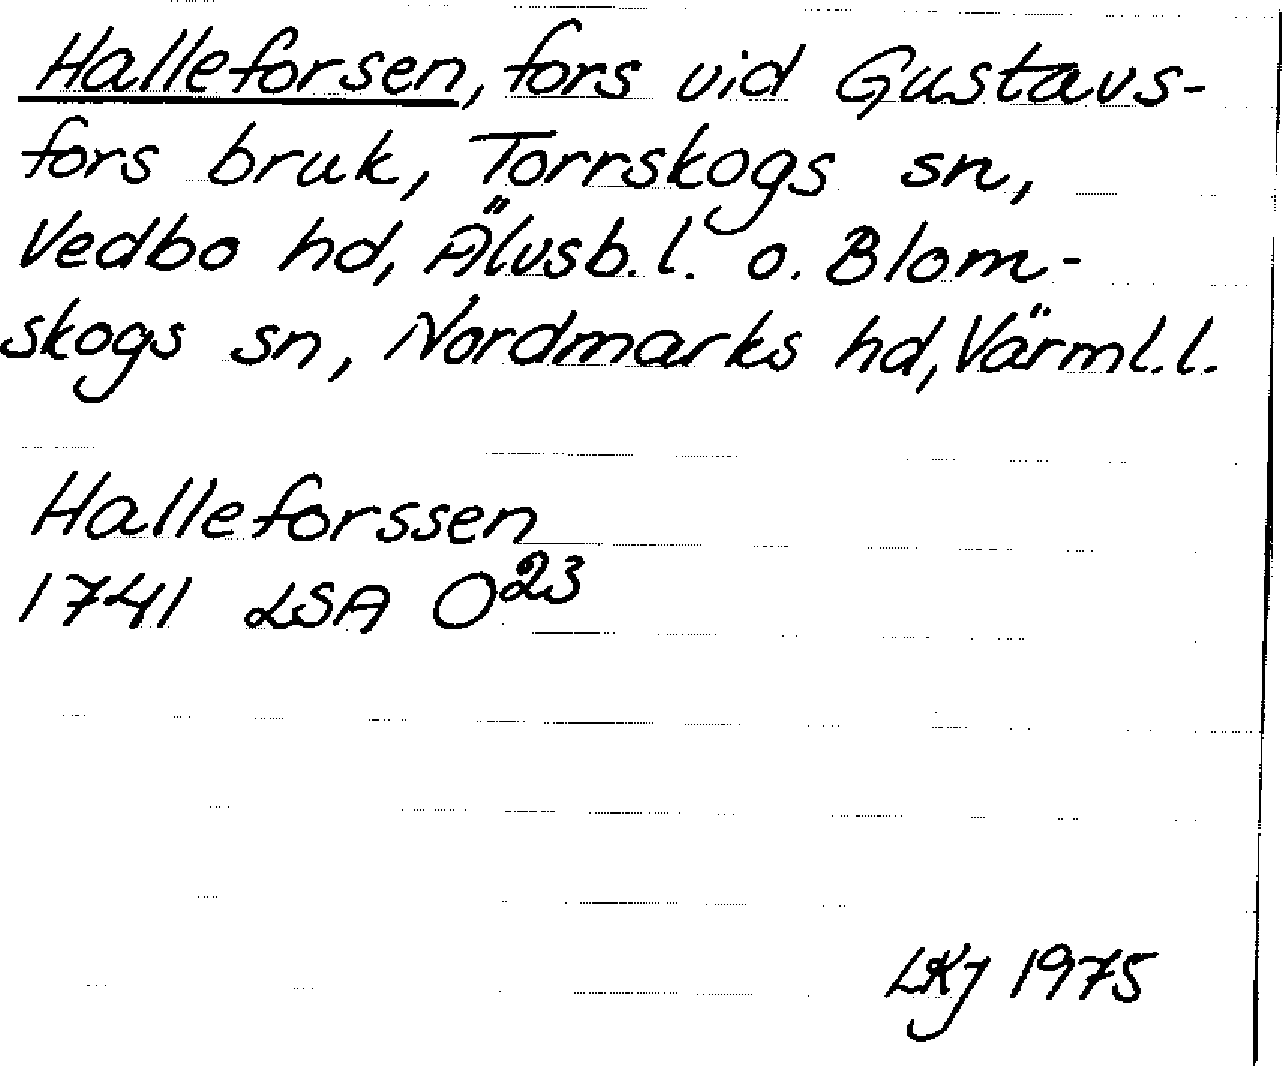 Halleforsen, fors vid Gustavs-
fors bruk, Torrskogs sn,
Vedbo hd, Älvsb. l. o. Blom-
skogs sn, Nordmarks hd, Värml. l.
Halleforssen
1741 LSA O23
LKJ 1975